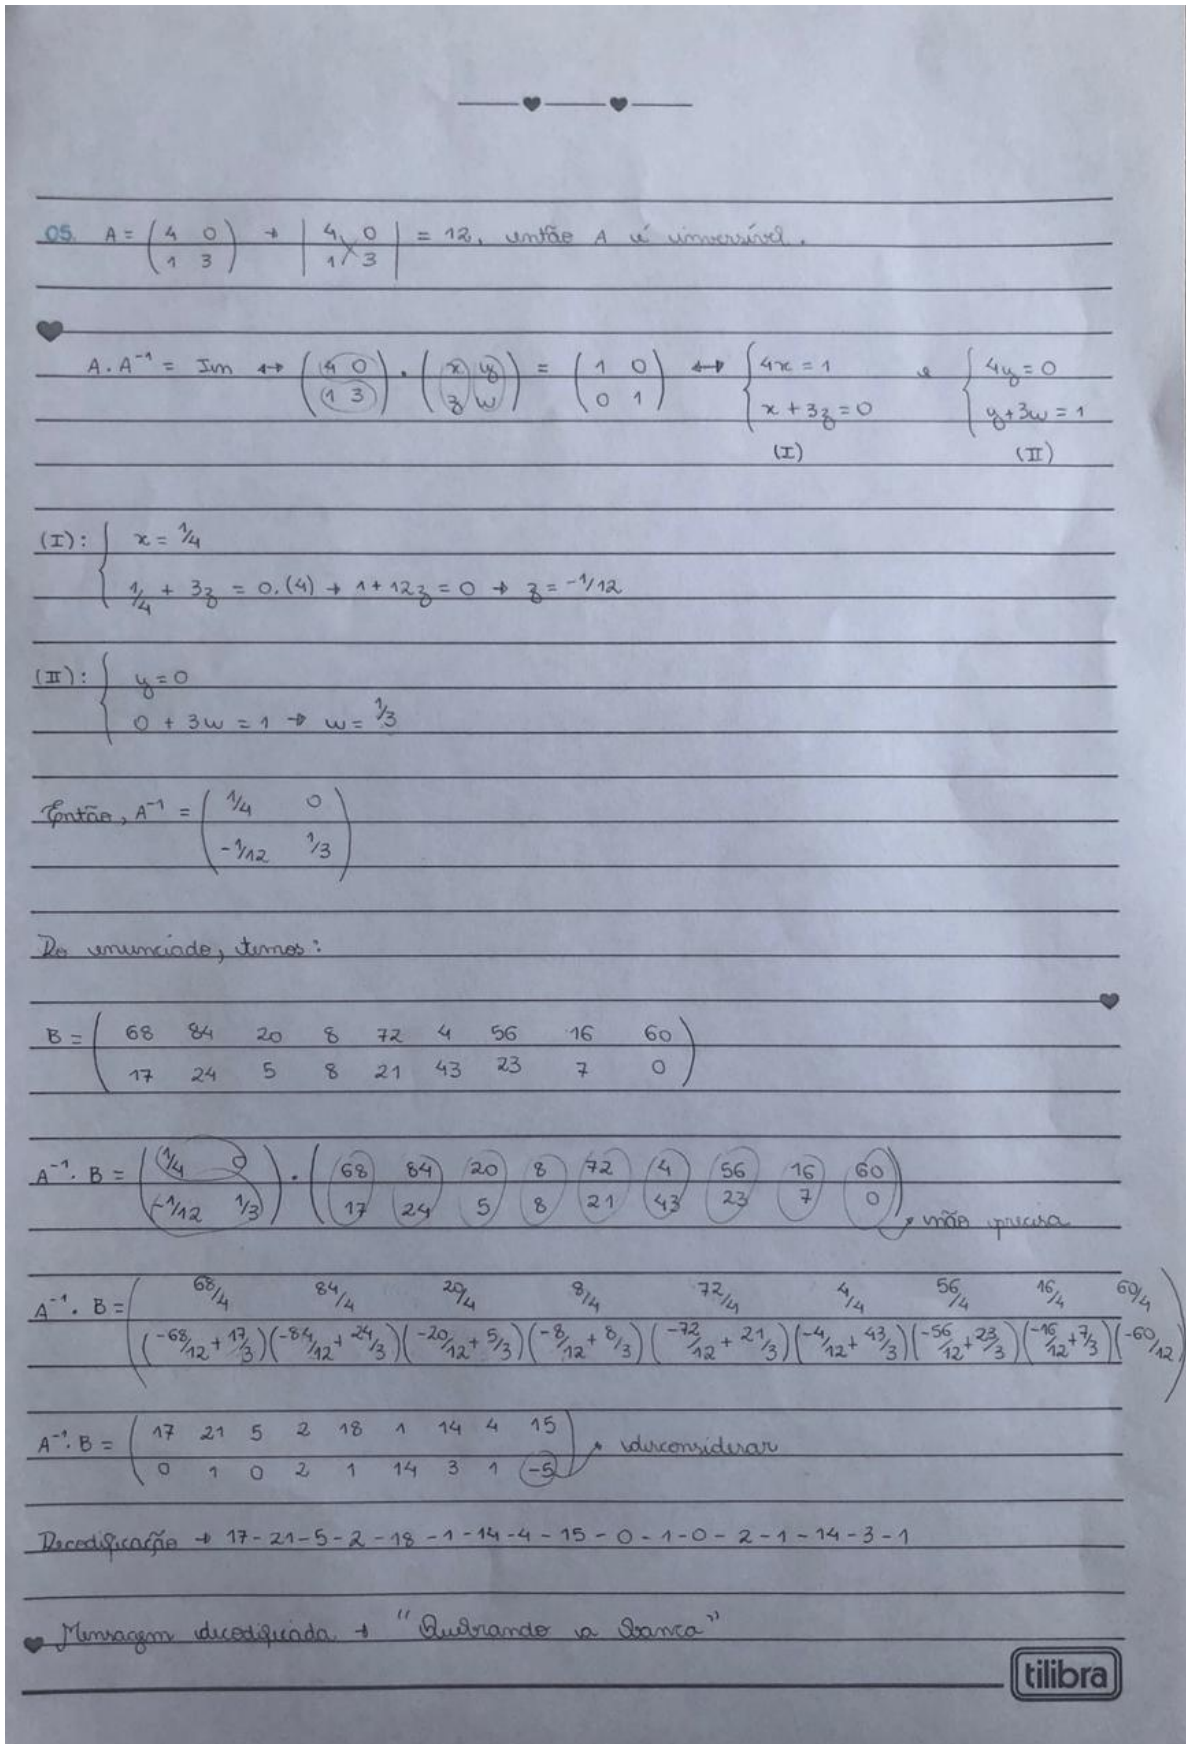 05. A = ( 4 0 ) → | 4 0 | = 12, então A é inversível.
( 1 3 ) | 1 3 |
A . A⁻¹ = Im ↔ ( 4 0 ) . ( x y ) = ( 1 0 ) ↔ { 4x = 1 e { 4y = 0
( 1 3 ) ( z w ) ( 0 1 ) { x + 3z = 0 { y + 3w = 1
(I) (II)
(I): { x = 1/4
{ 1/4 + 3z = 0 . (4) → 1 + 12z = 0 → z = -1/12
(II): { y = 0
{ 0 + 3w = 1 → w = 1/3
Então, A⁻¹ = ( 1/4 0 )
( -1/12 1/3 )
Do enunciado, temos:
B = ( 68 84 20 8 72 4 56 16 60 )
( 17 24 5 8 21 43 23 7 0 )
A⁻¹ . B = ( 1/4 0 ) . ( 68 84 20 8 72 4 56 16 60 )
( -1/12 1/3 ) ( 17 24 5 8 21 43 23 7 0 ) → não precisa
A⁻¹ . B = ( 68/4 84/4 20/4 8/4 72/4 4/4 56/4 16/4 60/4 )
(-68/12 + 17/3) (-84/12 + 24/3) (-20/12 + 5/3) (-8/12 + 8/3) (-72/12 + 21/3) (-4/12 + 43/3) (-56/12 + 23/3) (-16/12 + 7/3) (-60/12)
A⁻¹ . B = ( 17 21 5 2 18 1 14 4 15 ) → desconsiderar
( 0 1 0 2 1 14 3 1 -5 )
Decodificação → 17 - 21 - 5 - 2 - 18 - 1 - 14 - 4 - 15 - 0 - 1 - 0 - 2 - 1 - 14 - 3 - 1
Mensagem decodificada → "Quebrando a banca"
tilibra